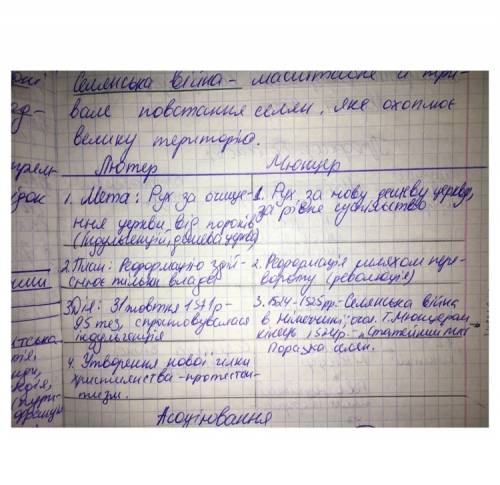 Селянська війна – масштабне й три-
вале повстання селян, яке охоплює
велику територію.
Лютер
Мюнцер
1. Мета: Рух за очище-
ння церкви від пороків
(Індульгенції, дешева церква)
1. Рух за нову дешеву церкву,
за рівне суспільство
2. План: Реформацію здій-
снює тільки влада
2. Реформація шляхом пере-
вороту (революція)
3. Дії: 31 жовтня 1517р-
95 тез, спростовувалася
індульгенція
3. 1524-1525рр-Селянська війна
в Німеччині, Т.Мюнцером
1524р-
Поразка селян.
4. Утворення нової гілки
християнства-протестан-
тизм.
Асоціювання